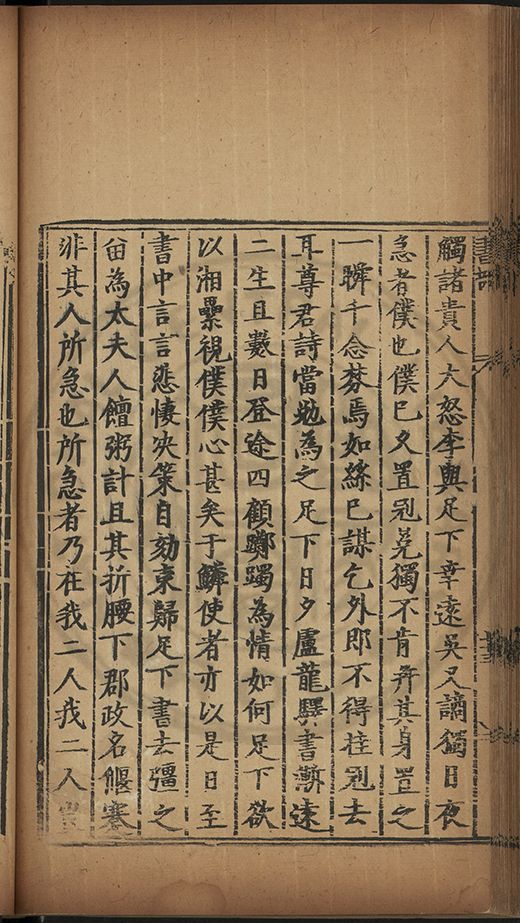 觸諸貴人大怒李輿足下幸遠吳又謫獨日夜
急者僕也僕已久置冠冕獨不肯弃其身罝之
一瞬千念棼焉如絲已謀乞外即不得挂冠去
耳尊君詩當勉為之足下日夕盧龍驛書漸遠
二生且數日登途四顧躑躅為情如何足下欲
以湘纍視僕僕心甚矣于鱗使者亦以是日至
書中言言悲悽决策自劾東歸足下書去彊之
留為太夫人饘粥計且其折腰下郡政名偃蹇
非其人所急也所急者乃在我二人我二人